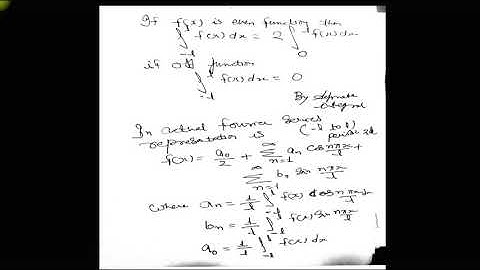 If f(x) is even function then
∫_{-l}^{l} f(x) dx = 2 ∫_{0}^{l} f(x) dx
if odd function
∫_{-l}^{l} f(x) dx = 0
By definite
integral
In actual fourier series
representation is (-l to l)
period 2l
f(x) = a₀/2 + ∑_{n=1}^{∞} aₙ cos nπx/l +
∑_{n=1}^{∞} bₙ sin nπx/l
where aₙ = 1/l ∫_{-l}^{l} f(x) cos nπx/l
bₙ = 1/l ∫_{-l}^{l} f(x) sin nπx/l
a₀ = 1/l ∫_{-l}^{l} f(x) dx